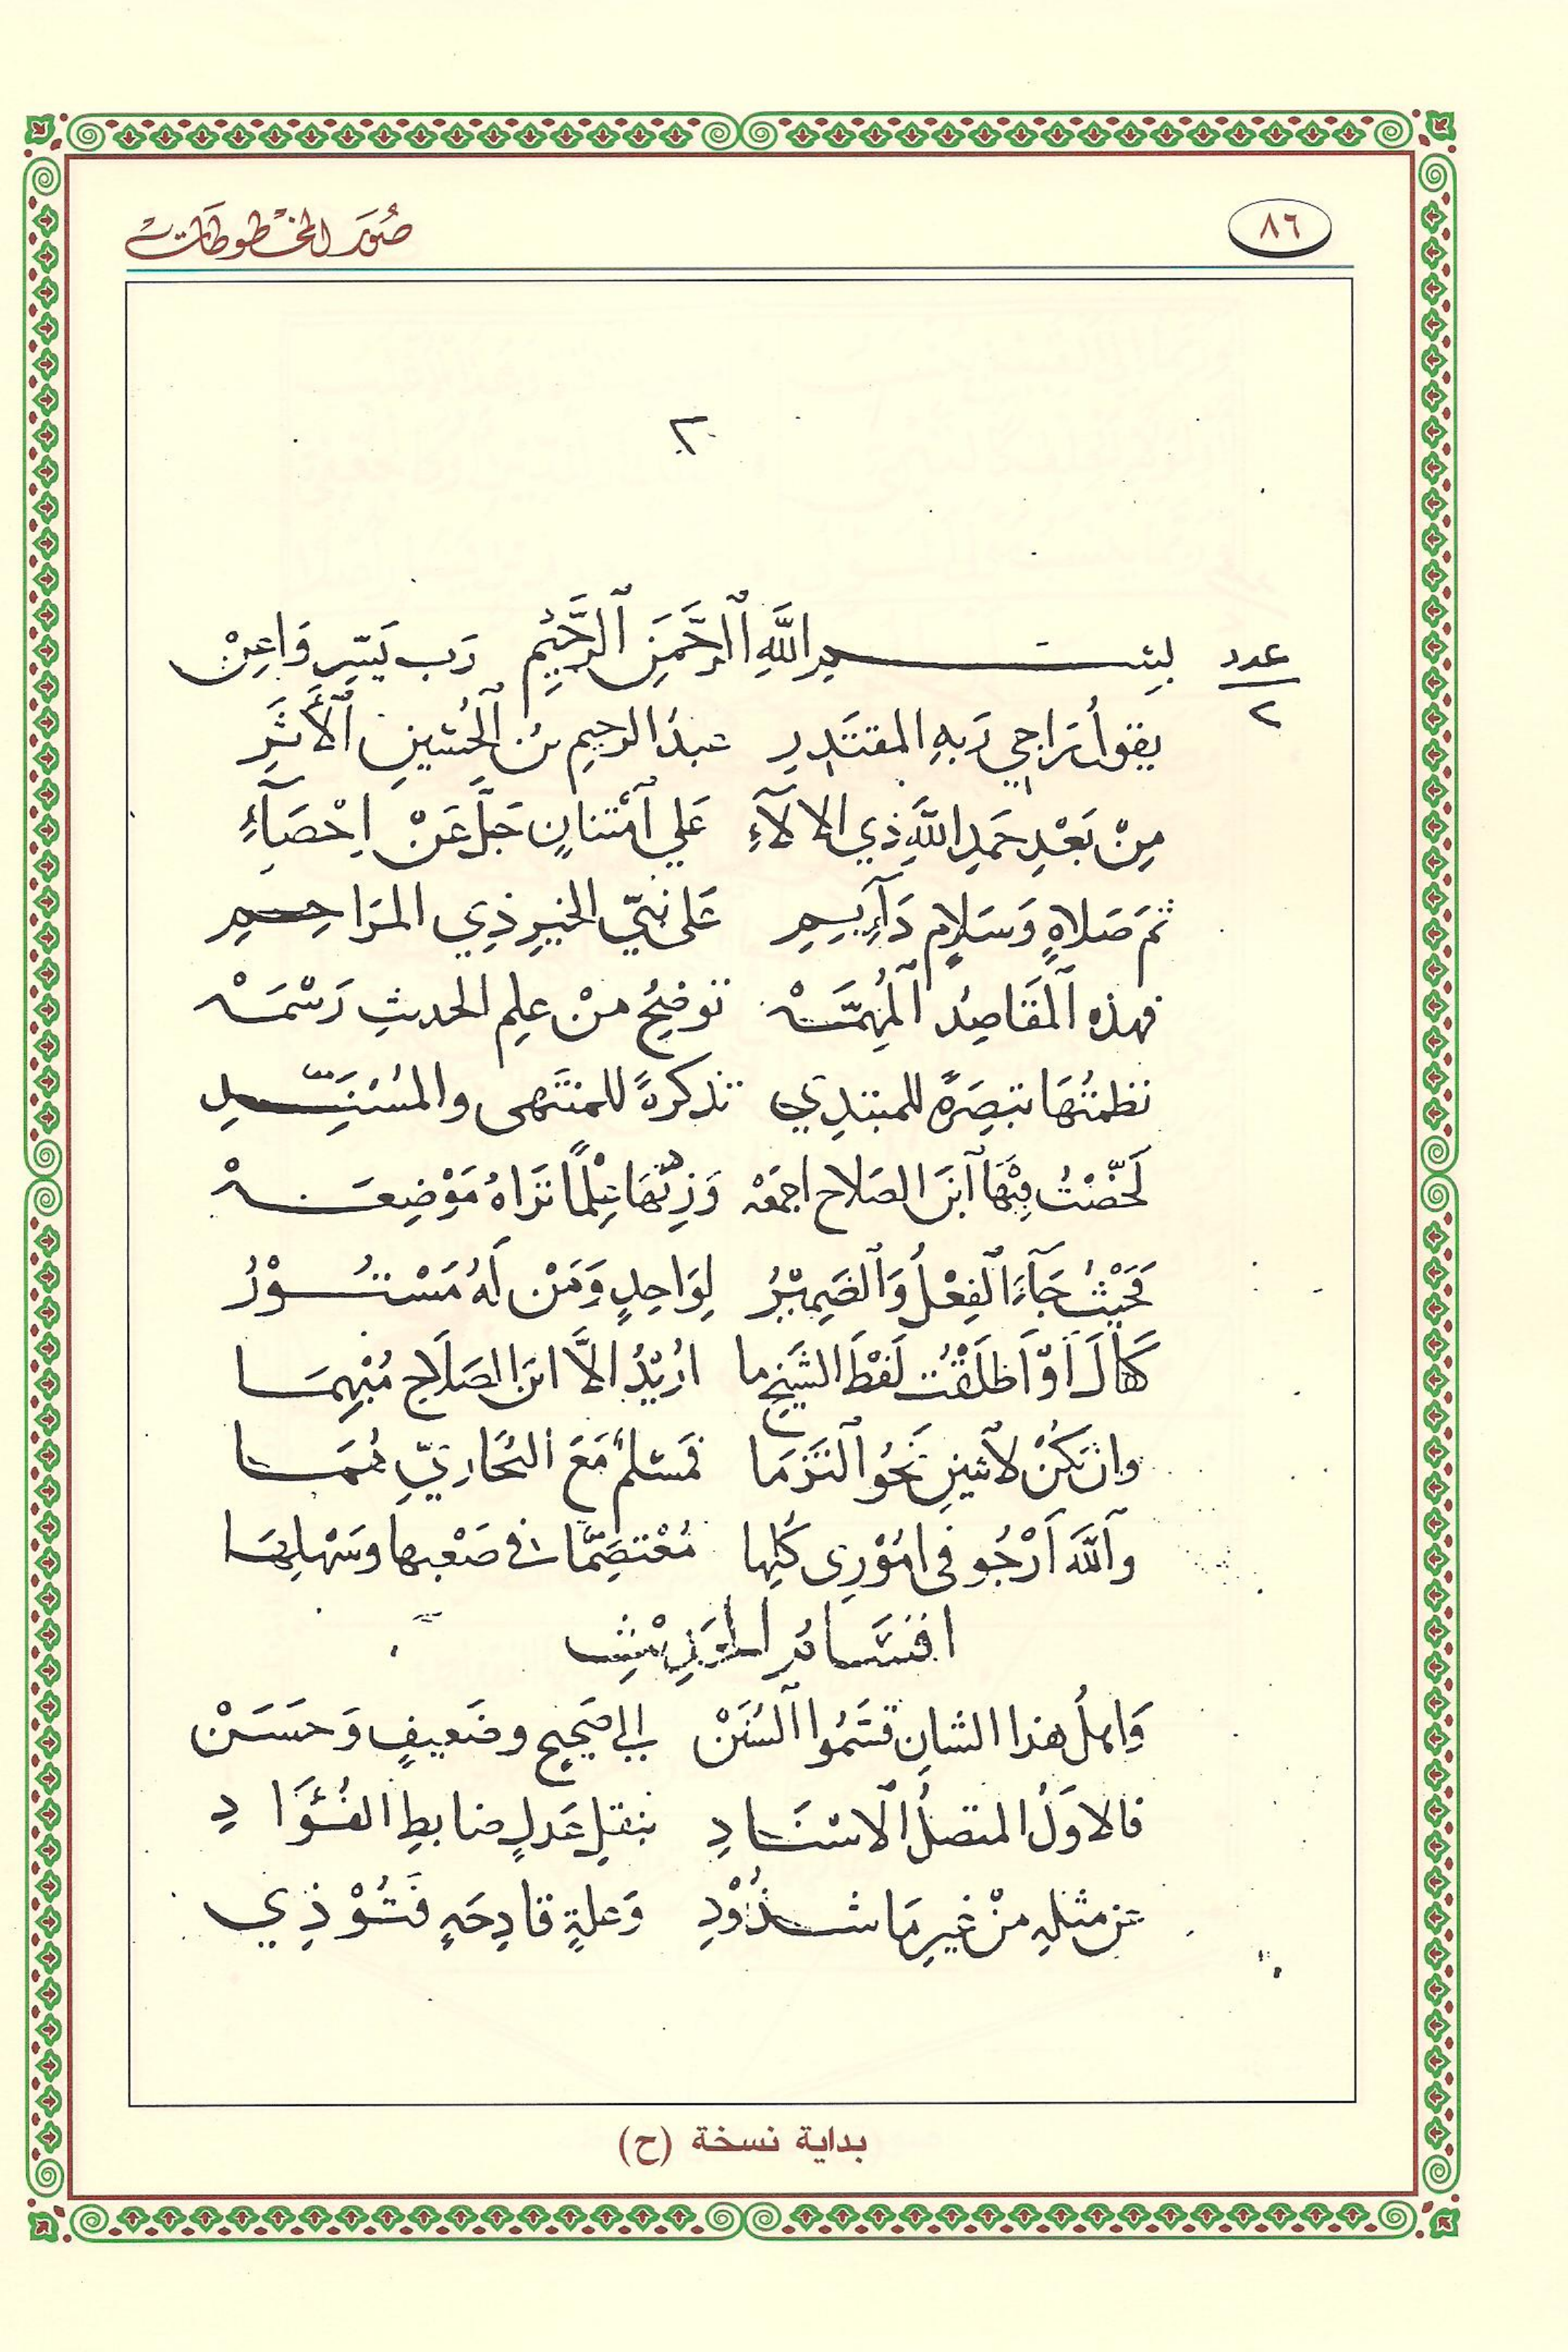 ٨٦
صُوَر المخطوطات
٢
عدد
٢
بسم اللَّهِ ٱلرَّحْمَنِ ٱلرَّحِيْمِ رَب يَسِّر وَاعِنْ
يقولُ رَاجي رَبهِ المقتَدِرِ عبدُ الرحيمِ بنُ ٱلْحُسَينِ ٱلأَثَرِي
مِنْ بَعْدِ حَمدِ اللَّهِ ذي الالآءِ عَلي ٱمْتنانٍ جَلَّ عَنْ اِحْصَآءِ
ثمَ صَلاهٍ وَسَلامٍ دَآيِمِ عَلى نبيّ الخيرِ ذِي المَرَاحِمِ
فهذه ٱلْمَقَاصِدُ ٱلْمُهِمَّهْ توضِيحُ منْ علمِ الحديثِ رَسْمَهْ
نظمتُهَا تبصِرَةً للمبتدِي تذكرةً للمنتَهى والمُسْنِدِ
لَخَّصْتُ فِيْهَا ٱبنَ الصَلاح اجمَعَهْ وَزِدْتُهَا عِلْمًا تَرَاهُ مَوْضِعَهْ
فَحَيْثُ جَآءَ ٱلْفِعْلُ وَٱلضَمِيْرُ لِوَاحِدٍ وَمَنْ لَهُ مَسْتُوْرُ
كَقَالَ أَوْ اَطْلَقْتُ لَفْظَ الشَيْخِ ما اُرِيْدُ الاَّ ابنَ الصَلَاحِ مُبْهِمَا
وان تَكُنْ لاثنينِ نَحْوُ التَزَمَا فَمسْلمٌ مَعَ البُخَاريِّ هُمَا
وٱللَّهَ اَرْجُو فى امُوْرِى كُلِها مُعْتَصِمًا فى صَعْبِها وسَهْلِهَا
اقسَامُ الحَدِيْثِ
وَاهلُ هذا الشانِ قسَّمُوا ٱلسُنَنْ الى صَحِيحٍ وضَعيفٍ وَحسَنْ
فالاوَلُ المتصلُ ٱلاسْنَادِ بنقلِ عَدلٍ ضابطِ الفُؤَادِ
عن مثلهِ منْ غيرِ مَا شُذُوْذِ وَعلةٍ قادِحَهٍ فَتُوْذِي
بداية نسخة (ح)